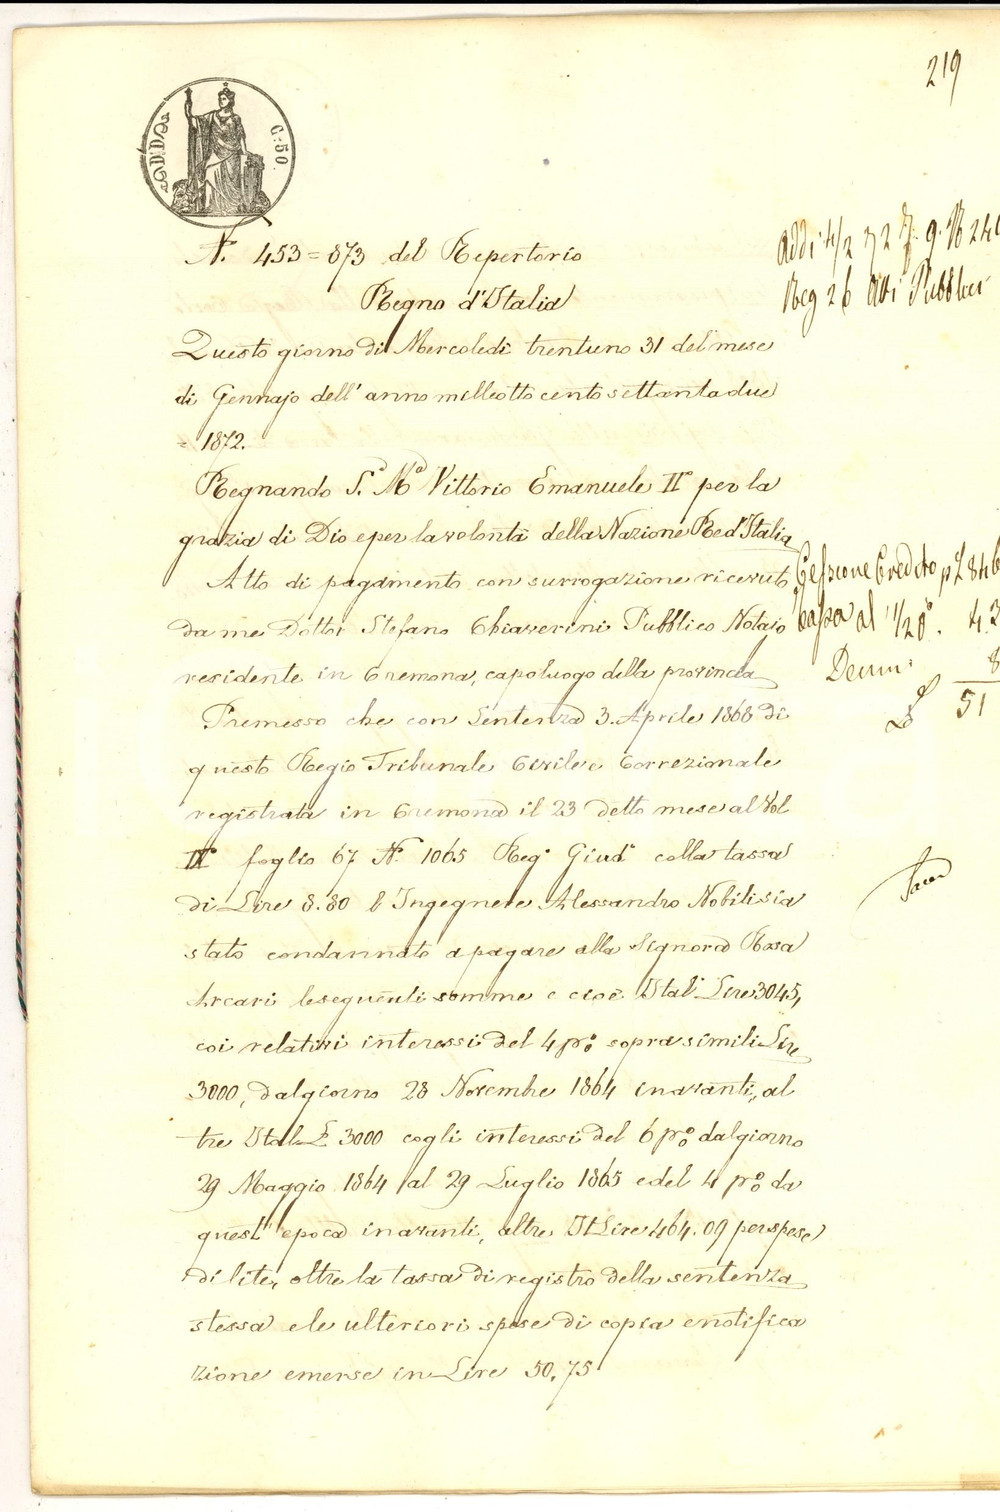 219
C: 50.
N. 453=873 del Repertorio
Regno d'Italia
Questo giorno di Mercoledi trentuno 31 del mese
di Gennajo dell' anno mille otto cento settanta due
= 1872.
Regnando S. Mª Vittorio Emanuele II per la
grazia di Dio e per la volontà della Nazione Re d'Italia
Atto di pagamento con surrogazione ricevuto
da me Dottor Stefano Chiaverini Pubblico Notajo
residente in Cremona, capoluogo della provincia
Premesso che con Sentenza 3. Aprile 1868 di
questo Regio Tribunale Civile e Correzionale
registrata in Cremona il 23 detto mese al Vol
foglio 67 N. 1065 Reg. Giud. colla tassa
di Lire 8.80 l'Ingegnere Alessandro Nobili sia
stato condannato a pagare alla Signora Rosa
Arcari le seguenti somme e cioè Ital. Lire 3045,
coi relativi interessi del 4 p% sopra simili Lire
3000, dal giorno 28 Novembre 1864 inavanti, al
tre Ital. L 3000 cogli interessi del 6 p% dal giorno
29 Maggio 1864 al 29 Luglio 1865 e del 4 p% da
quest' epoca inavanti, altre It Lire 464.09 per spese
di lite, oltre la tassa di registro della sentenza
stessa e le ulteriori spese di copia e notifica
zione emerse in Lire 50,75
Addi 4/2 72
Reg 26 Atti Pubblici
Cessione Credito
tassa al 1/20.
Decimi
51